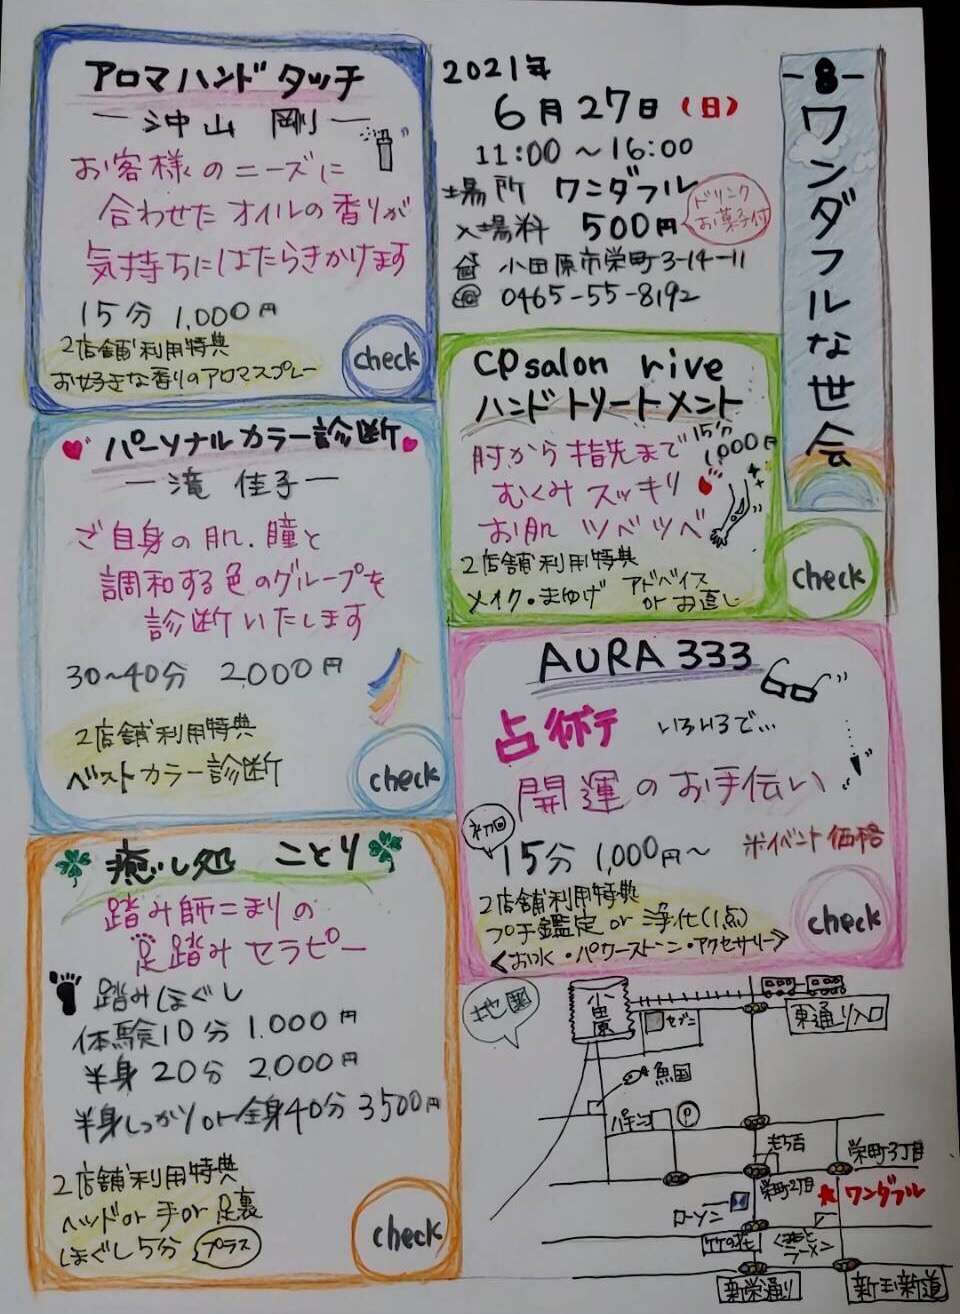 -8-
ワンダフルな世会
2021年
6月27日(日)
11:00〜16:00
場所 ワンダフル
入場料 500円
ドリンク
お菓子付
小田原市栄町3-14-11
0465-55-8192
アロマハンドタッチ
—沖山 剛—
お客様のニーズに
合わせたオイルの香りが
気持ちにはたらきかけます
15分 1,000円
2店舗利用特典
お好きな香りのアロマスプレー
check
CPsalon rive
ハンドトリートメント
15分
1,000円
肘から指先まで
むくみスッキリ
お肌 ツベツベ
2店舗利用特典
メイク・まゆげ アドバイス
or お直し
check
パーソナルカラー診断
—滝 佳子—
ご自身の肌、瞳と
調和する色のグループを
診断いたします
30〜40分 2,000円
2店舗利用特典
ベストカラー診断
check
AURA333
占術 いろいろで...
開運のお手伝い
初回
15分 1,000円〜 ※イベント価格
2店舗利用特典
プチ鑑定 or 浄化(1点)
<お水・パワーストーン・アクセサリー>
check
癒し処 ことり
踏み師こまりの
足踏みセラピー
踏みほぐし
体験10分 1.000円
半身20分 2,000円
半身しっかりor全身40分 3500円
2店舗利用特典
ヘッドor手or足裏
ほぐし5分 プラス
check
地図
小田原
セブン
東通り入口
魚国
パチンコ
P
栄町3丁目
栄町2丁目
ワンダフル
ローソン
竹の花
ラーメン
新栄通り
新玉新道